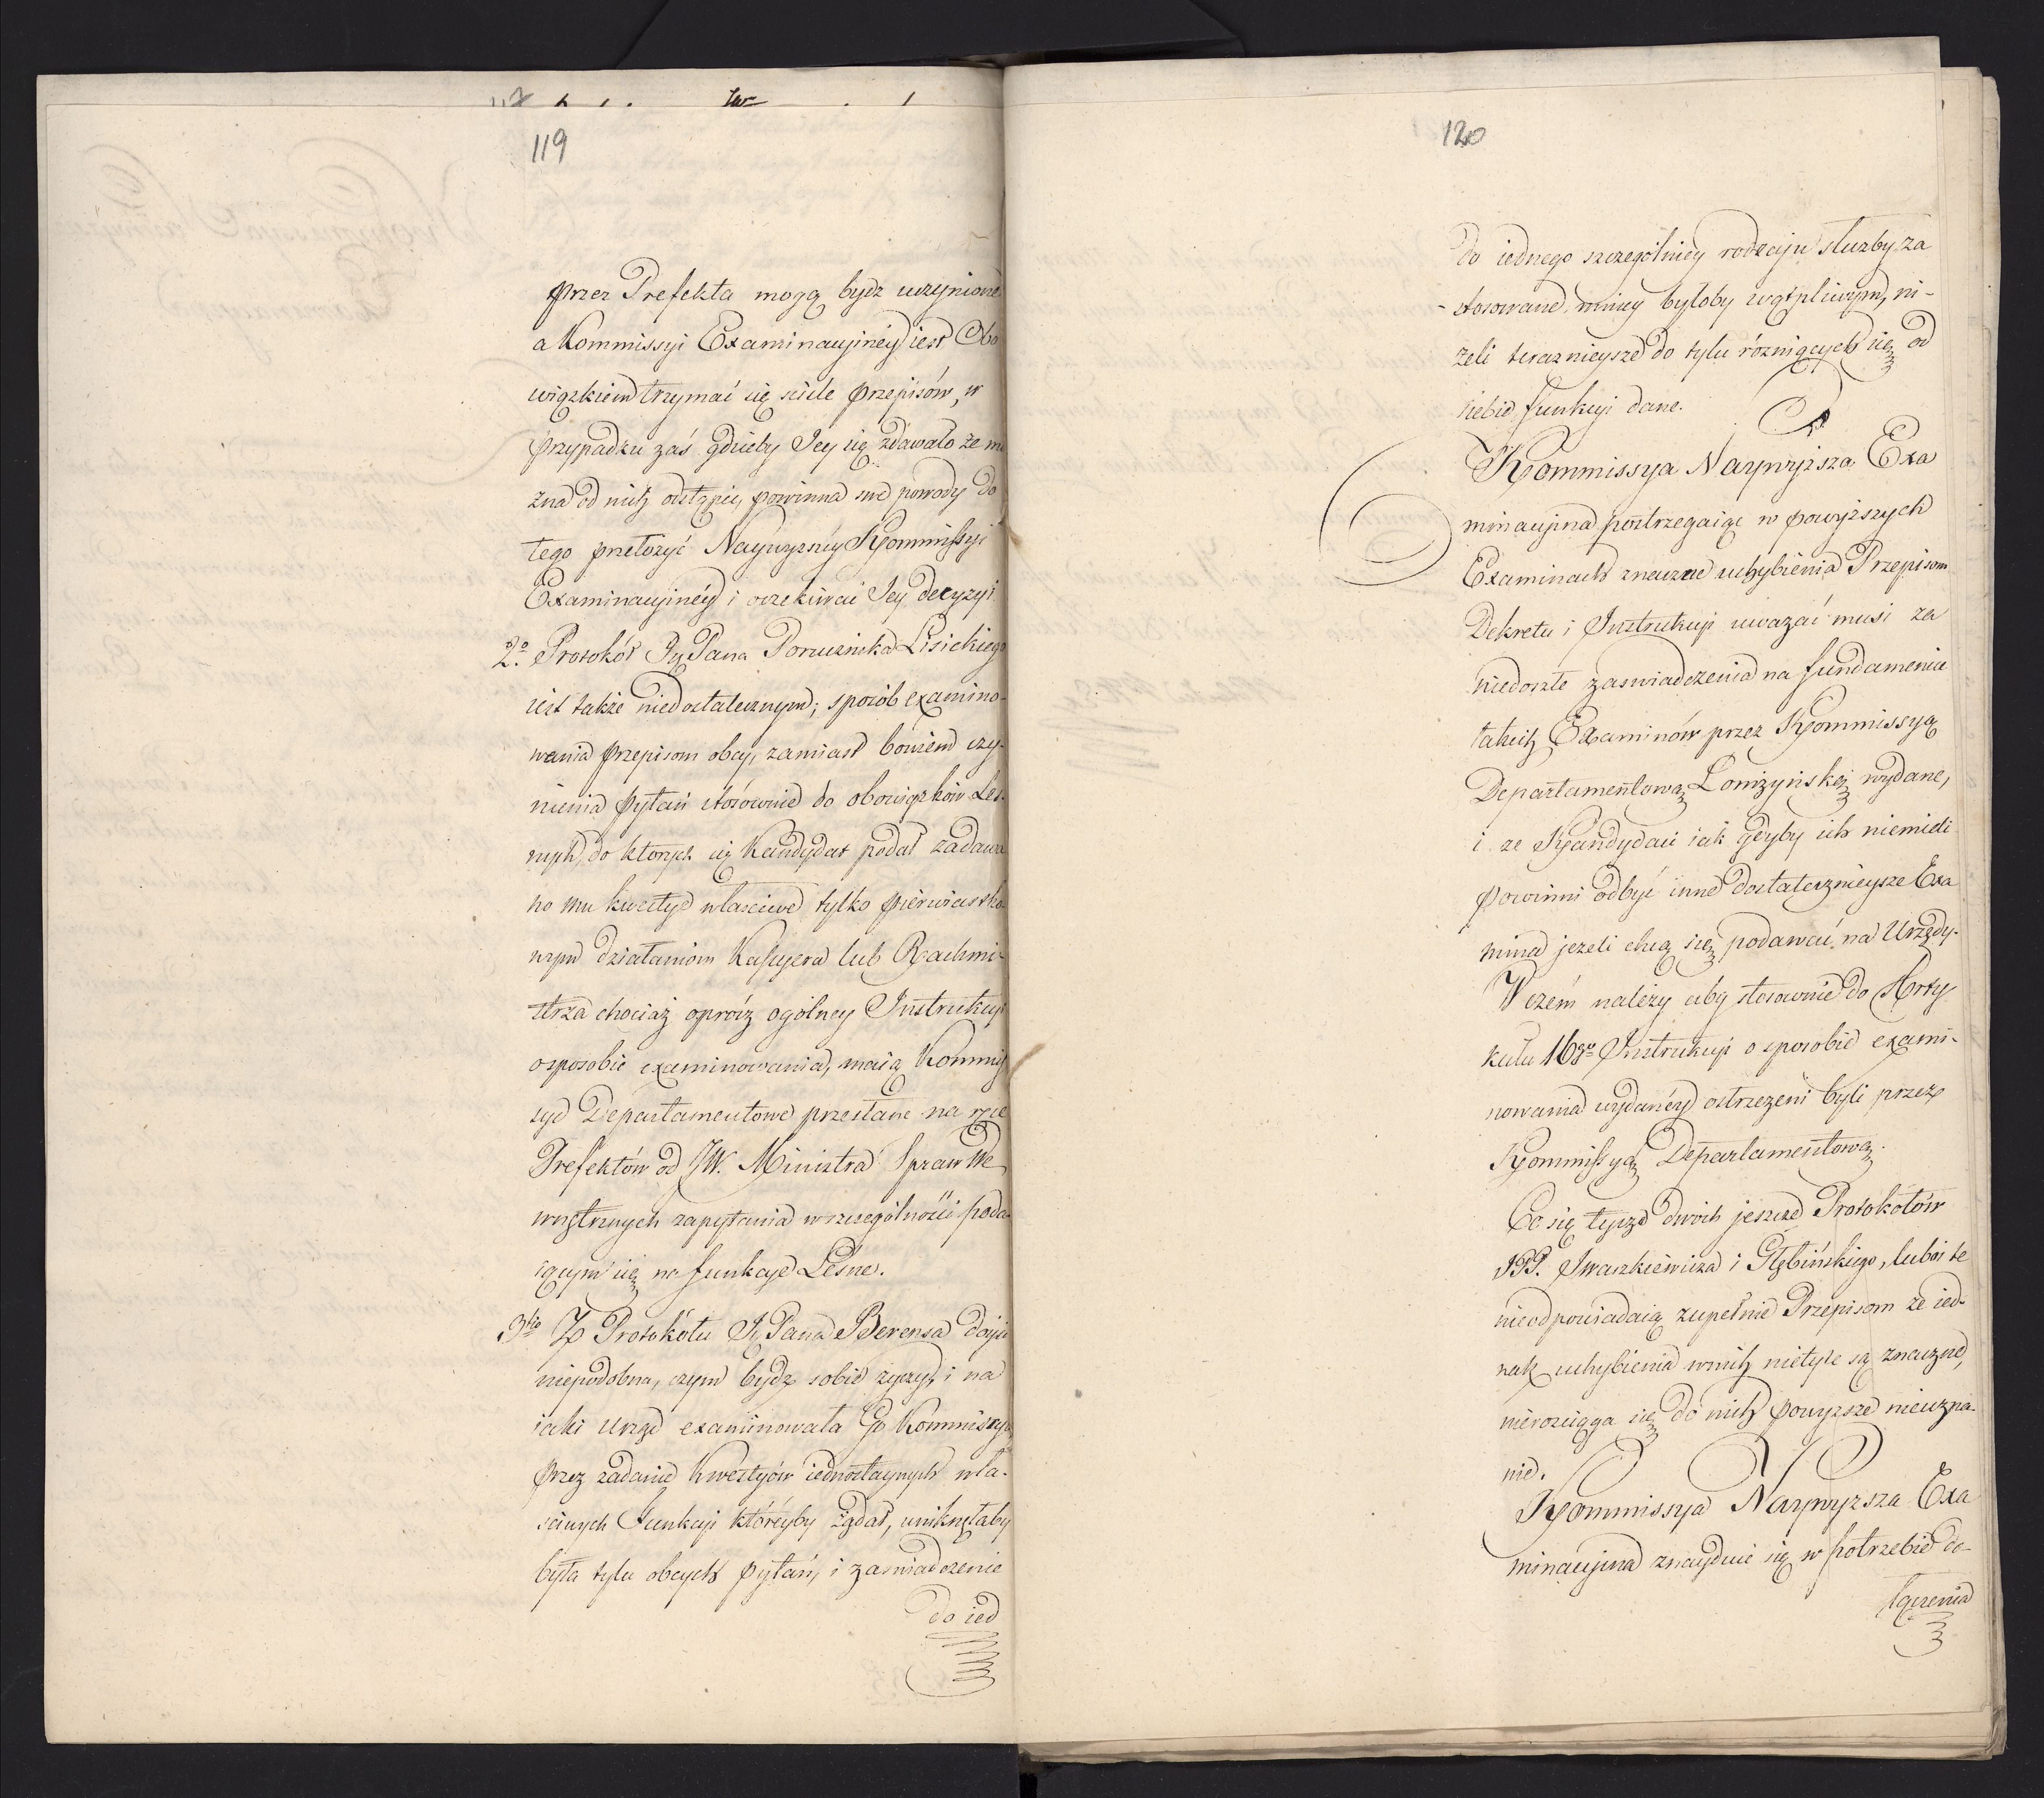 119
przez Prefekta mogą bydz uczynione
a Kommissyi Examinacyiney iest Obo
wiązkiem trzymać się scisle przepisów, w
przypadku zaś gdzieby Jey się zdawało że mo
żna od nich odstąpić, powinna swe powody do
tego przełożyć Naywyższey Kommissyi
Examinacyinéy i oczekiwać Jey decyzyi
2o. Protokół JPana Porucznika Lisickiego
iest także niedostatecznym; sposób examino-
wania przepisom obcy, zamiast bowiem czy-
nienia pytań stosownie do obowiązków Leś-
nych, do ktorych się Kandydat podał zadawa
no mu kwestye własciwe tylko pierwiastko-
wym działaniom Kassyera lub Rachmi-
strza chociaż oprócz ogólney Instrukcyi
o sposobie examinowania, maią Kommis
sye Departamentowe przesłane na ręce
Prefektów od JW. Ministra Spraw We
wnętrznych zapytania w szczególności poda-
iącym się na funkcye Leśne.
3tio Z Protokółu JPana Berensa doyść
niepodobna, czym bydz sobie życzył, i na
iaki urząd examinowała Go Kommissya,
przez zadanie Kwestyów iednostaynych wła-
sciwych Funkcyi któréyby żądał, uniknęłaby
była tylu obcych pytań, i zaswiadczenie
do ied
120
do iednego szczególniey rodzaju służby za
stosowane mniey byłoby wątpliwym, ni-
żeli teraznieysze do tylu rózniących się od
siebie funkcyi dane.
Kommissya Naywyższa Exa
minacyina postrzegaiąc w powyższych
Examinach znaczne uchybienia Przepisom
Dekretu i Instrukcyi uważać musi za
niedoszłe zaswiadczenia na fundamencie
takich Examinów przez Kommissyą
Departamentową Łomżyńską wydane,
i ze Kandydaci iak gdyby ich niemieli
powinni odbyć inne dostatecznieysze Exa
mina jeżeli chcą się podawać na Urzędy.
W czém należy aby stosownie do Arty
kułu 16go Instrukcyi o sposobie exami-
nowania wydanéy ostrzeżeni byli przez
Kommissyą Departamentową.
Co się tycze dwóch jeszcze Protokołów
JPP. Iwaszkiewicza i Głębińskiego, lubo i te
nieodpowiadaią zupełnie Przepisom że ied-
nak uchybienia w nich nietyle są znaczne,
nierozciąga się do nich powyższe nieuzna-
nie.
Kommissya Naywyższa Exa
minacyina znayduie się w potrzebie do-
łączenia